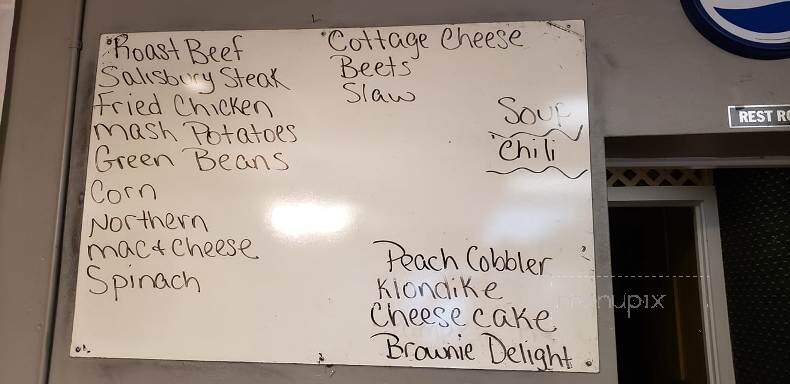 Roast Beef
Salisbury Steak
Fried Chicken
mash Potatoes
Green Beans
Corn
Northern
mac + cheese
Spinach
Cottage Cheese
Beets
Slaw
Soup
Chili
Peach Cobbler
Klondike
Cheese cake
Brownie Delight
REST RO
menupix